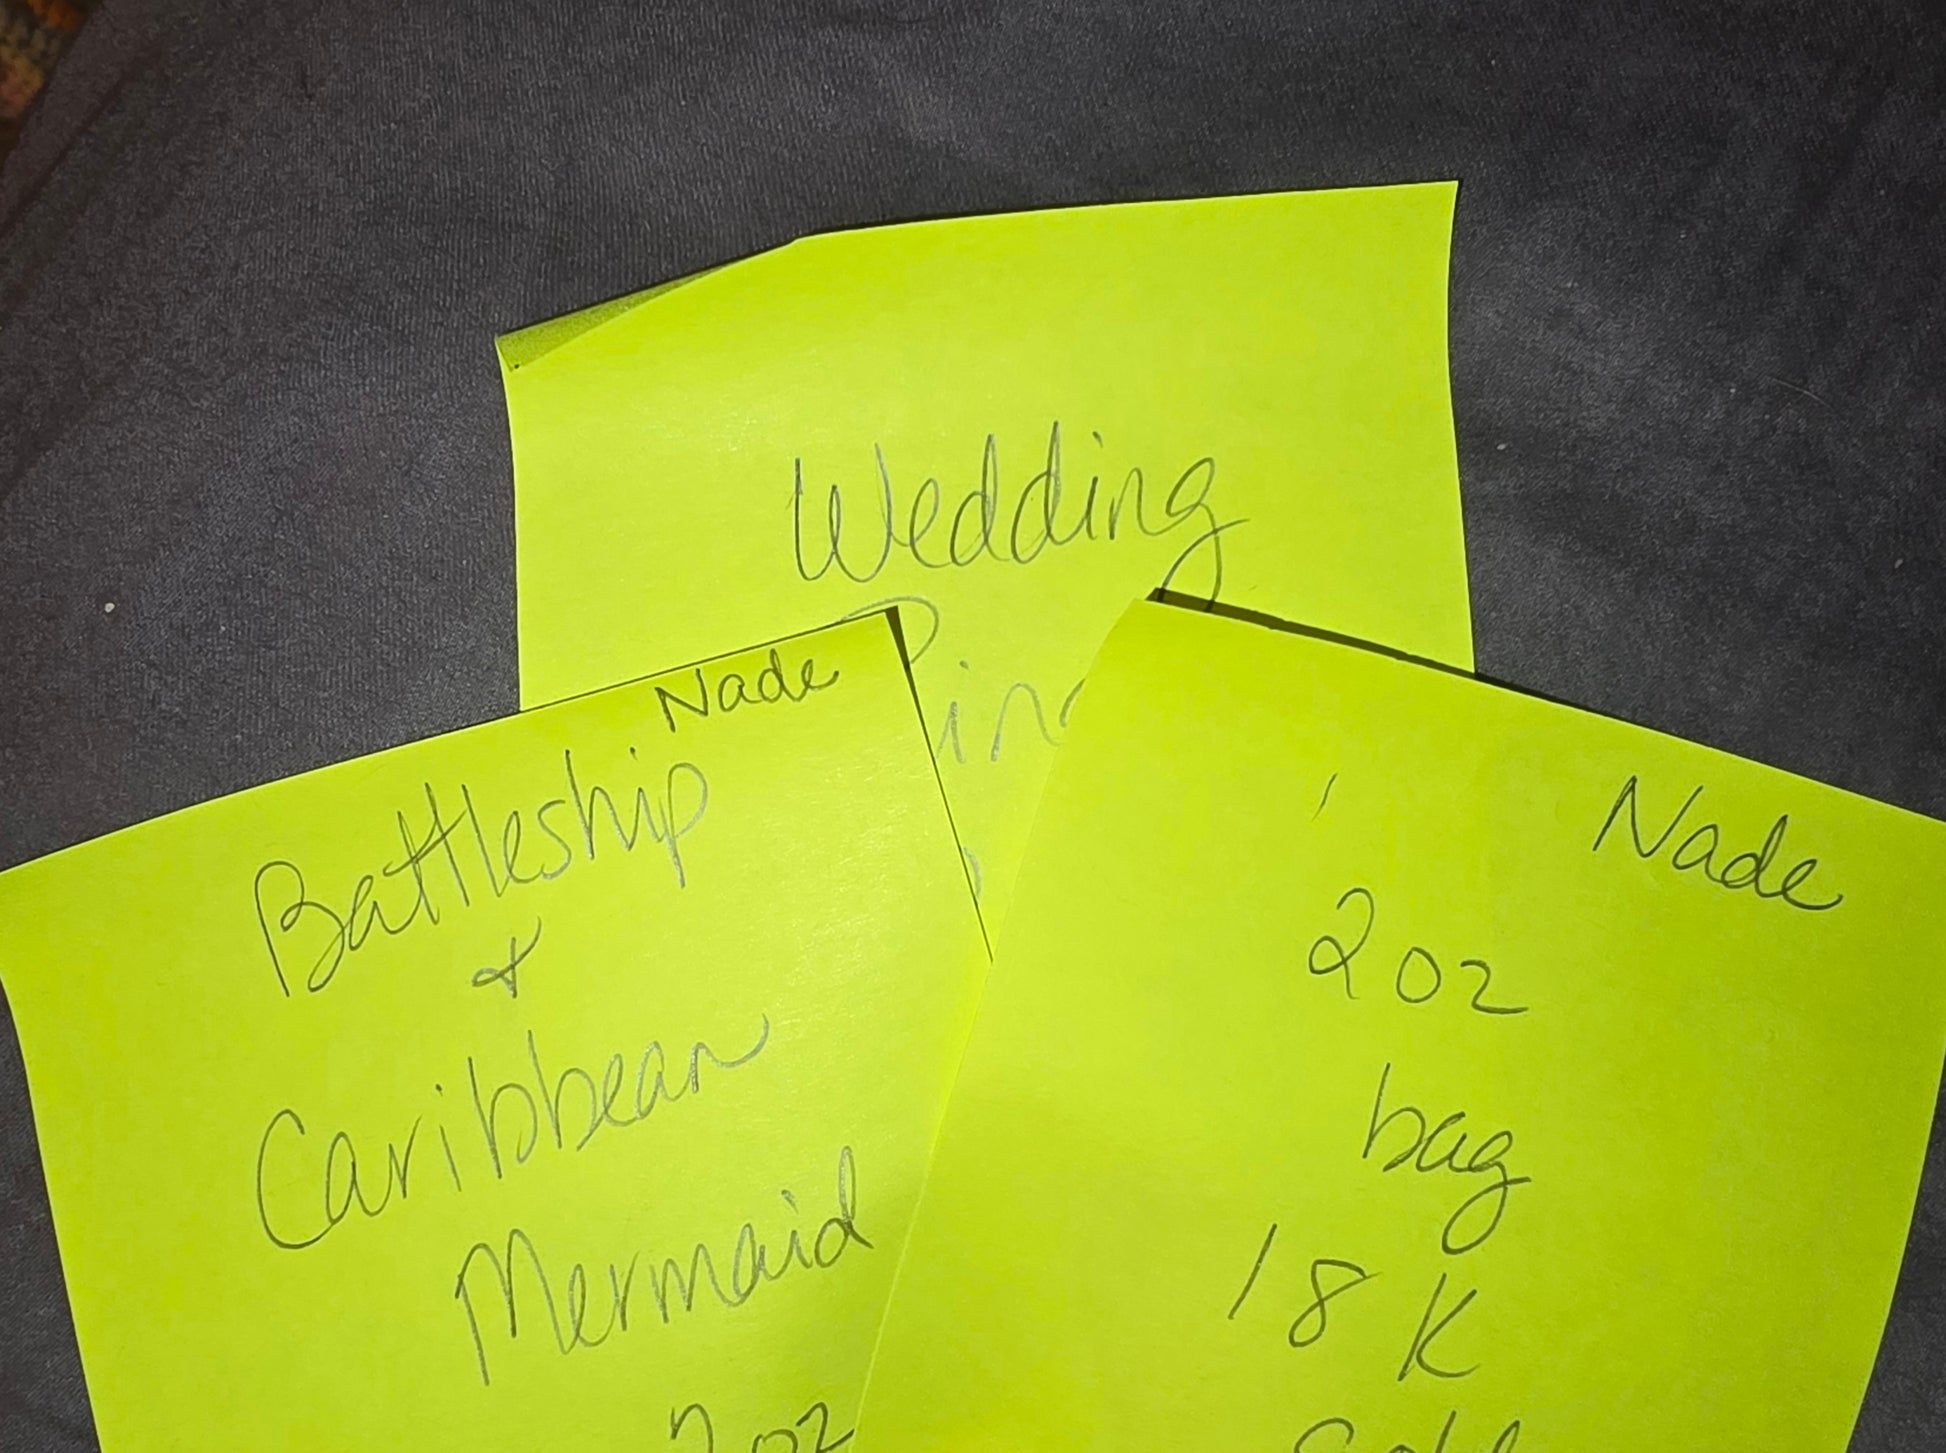 Wedding
Nade
Battleship
&
Caribbean
Mermaid
2oz
Nade
2oz
bag
18K